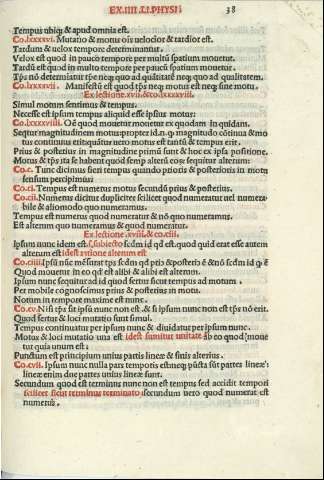 EX.IIII.LI.PHYSI. 38
Tempus ubiq; & apud omnia est.
Co.lxxxvi. Mutatio & motus ois velocior & tardior est.
Tardum & velox tempore determinantur.
Velox est quod in pauco tempore per multū spatium mouetur.
Tardū est quod in multo tempore per paucū spatium mouetur.
Tps nō determinatur tpe neq; quo ad quātitatē neq; quo ad qualitatem.
Co.lxxxvii. Manifestū est quod tps neq; motus est neq; sine motu.
Ex lectione .xvii. & co.lxxxxviii.
Simul motum sentimus & tempus.
Necesse est ipsum tempus aliquid esse ipsius motus.
Co.lxxxxviiii. Oē quod mouetur mouetur ex quodam in quiddam.
Sequitur magnitudinem motus: propter id.n.q; magnitudo cōtinua & motus continuus erit: quātus uero motus est tantū & tempus erit.
Prius & posterius in magnitudine primū sunt & hoc ex ipsa positione.
Motus & tps ita se habent quod semp alterū eorum sequitur alterum:
Co.c. Tunc dicimus fieri tempus quando prioris & posterioris in motu
sensum percipimus:
Co.ci. Tempus est numerus motus secundū prius & posterius.
Co.cii. Numerus dicitur dupliciter scilicet quod numeratur uel numerabile & aliomodo quo numeramus.
Tempus est numerus quod numeratur & nō quo numeramus.
Est alterum quo numeramus & quod numeratur.
Ex lectione .xviii. & co.ciii.
Ipsum nunc idem est .s. subiecto scdm id qd est. quod quid erat esse autem
alterum est idest ratione alterum est
Co.ciiii. Ipsū nūc mēsurat tps scdm qd prio & posterio ē & nō scdm id q; ē
Quod mouetur in eo qd est alibi & alibi est alterum.
Ipsum nunc sequitur ad id quod fertur sicut tempus ad motum.
Per mobile cognoscimus prius & posterius in motu.
Notum in tempore maxime est nunc.
Co.cv. Nisi tps sit ipsū nunc non est. & si ipsum nunc non est tps nō erit.
Quod fertur & loci mutatio sunt simul.
Tempus continuatur per ipsum nunc & diuidatur per ipsum nunc.
Motus & loci mutatio una est idest sumitur unitate ab eo quod mouetur quia unum est:
Punctum est principium unius partis lineæ & finis alterius.
Co.cvii. Ipsum nunc nulla pars temporis est neq; pūcta sūt partes lineæ:
lineæ enim due partes unius lineæ sunt.
Secundum quod est terminus nunc non est tempus sed accidit tempori
scilicet sicut terminus terminato secundum uero quod numerat est
numerus.